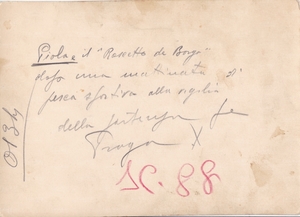 Piola e il "Rassetto de Borgo"
dopo una mattinata di
pesca sportiva alla vigilia
della partenza per
Praga X
0134